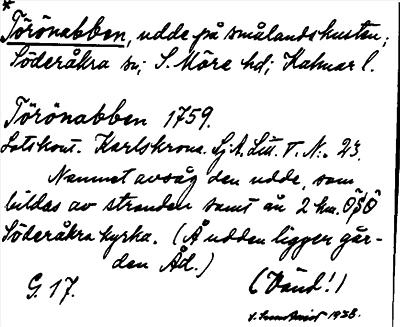 *
Törönabben, udde på smålandskusten;
Söderåkra sn; S. Möre hd; Kalmar l.
Törönabben 1759.
Lotskont. Karlskrona. Lj.A. Litt. T. N:o 23.
Namnet avsåg den udde, som
bildas av stranden samt ån 2 km. ÖSÖ
Söderåkra kyrka. (Å udden ligger går-
den Åd.)
G. 17. (Vänd!)
1938.